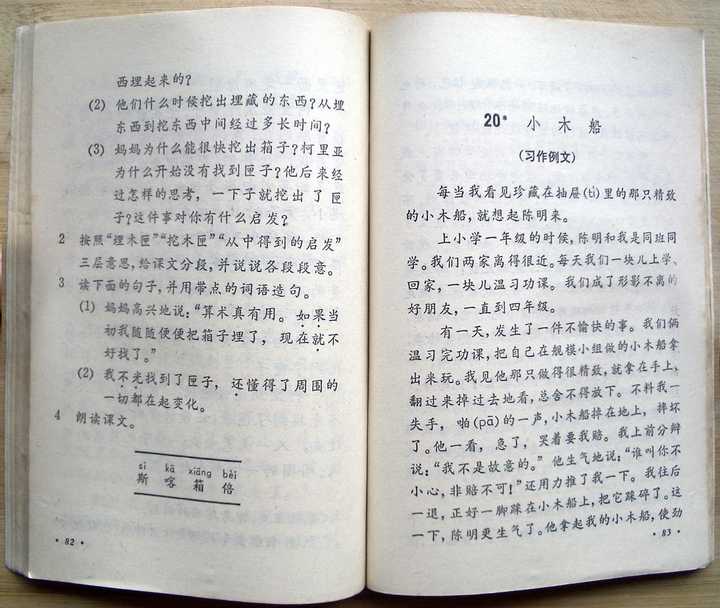 西埋起来的?
(2) 他们什么时候挖出埋藏的东西?从埋
东西到挖东西中间经过多长时间?
(3) 妈妈为什么能很快挖出箱子?柯里亚
为什么开始没有找到匣子?他后来经
过怎样的思考,一下子就挖出了匣
子?这件事对你有什么启发?
2 按照“埋木匣”“挖木匣”“从中得到的启发”
三层意思,给课文分段,并说说各段段意。
3 读下面的句子,并用带点的词语造句。
(1) 妈妈高兴地说:“算术真有用。如果当
初我随随便便把箱子埋了,现在就不
好找了。”
(2) 我不光找到了匣子,还懂得了周围的
一切都在起变化。
4 朗读课文。
sī kā xiāng bèi
斯 喀 箱 倍
·82·
20* 小木船
(习作例文)
每当我看见珍藏在抽屉(tì)里的那只精致
的小木船,就想起陈明来。
上小学一年级的时候,陈明和我是同班同
学。我们两家离得很近。每天我们一块儿上学、
回家,一块儿温习功课。我们成了形影不离的
好朋友,一直到四年级。
有一天,发生了一件不愉快的事。我们俩
温习完功课,把自己在航模小组做的小木船拿
出来玩。我见他那只做得很精致,就拿在手上,
翻过来掉过去地看,总舍不得放下。不料我一
失手,啪(pā)的一声,小木船掉在地上,摔坏
了。他一看,急了,哭着要我赔。我上前分辩
说:“我不是故意的。”他生气地说:“谁叫你不
小心,非赔不可!”还用力推了我一下。我往后
一退,正好一脚踩在小木船上,把它踩碎了。这
一下,陈明更生气了。他拿起我的小木船,使劲
·83·